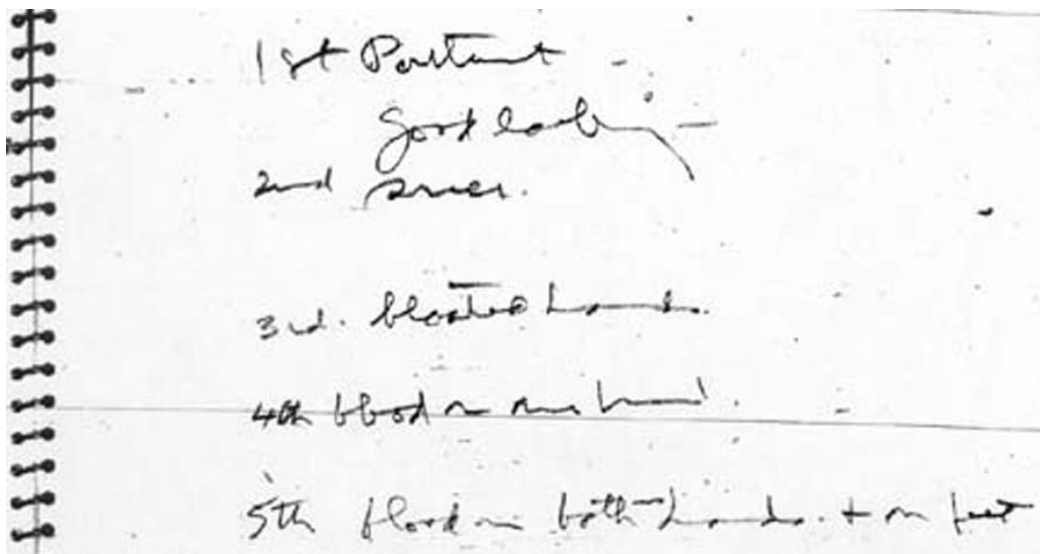 1st Portrait -
Good looking -
2nd sneer.
3rd. bloated hands.
4th blood on one hand.
5th blood on both hands. + on feet